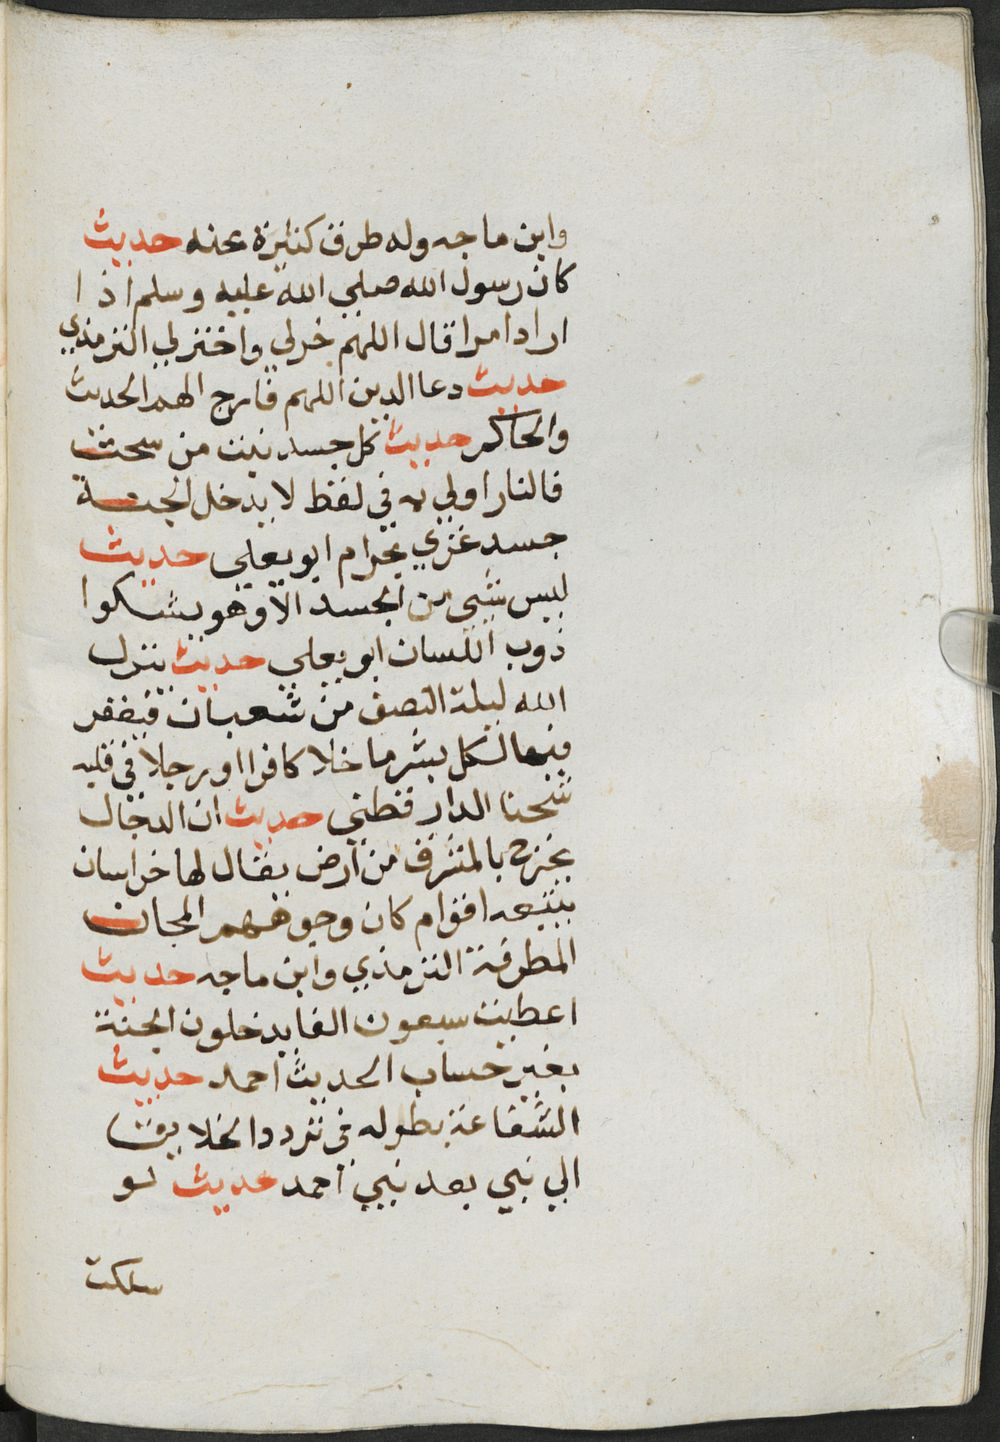 وابن ماجه وله طرق كثيرة عنه حديث
كان رسول الله صلي الله عليه وسلم اذا
اراد امرا قال اللهم خرلي واخترلي الترمذي
حديث دعا الدين اللهم فارج الهم الحديث
والحاكم حديث كل جسد نبت من سحت
فالنار اولي به في لفظ لا يدخل الجنة
جسد غزي بحرام ابو يعلي حديث
ليس شي من الجسد الا وهو يشكوا
ذوب اللسان ابو يعلي حديث ينزل
الله ليلة النصف من شعبان فيغفر
فيها لكل بشر ما خلا كافرا او رجلا في قلبه
شحنا الدار قطني حديث ان الدجال
يخرج بالمشرق من ارض يقال لها خراسان
يتبعه اقوام كان وجوههم المجان
المطرقة الترمذي وابن ماجه حديث
اعطيت سبعون الفا يدخلون الجنة
بغير حساب الحديث احمد حديث
الشفاعة بطوله في تردد الخلايق
الي نبي بعد نبي احمد حديث لو
سلكت